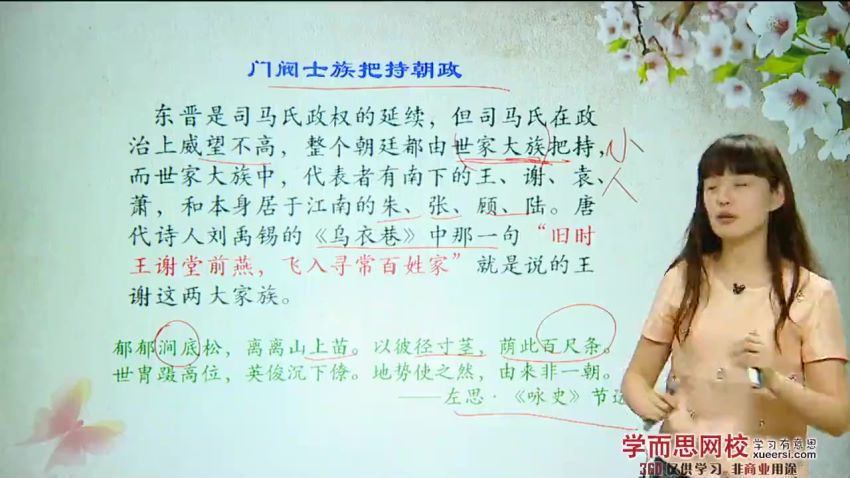 门阀士族把持朝政
东晋是司马氏政权的延续，但司马氏在政
治上威望不高，整个朝廷都由世家大族把持，
而世家大族中，代表者有南下的王、谢、袁、
萧，和本身居于江南的朱、张、顾、陆。唐
代诗人刘禹锡的《乌衣巷》中那一句“旧时
王谢堂前燕，飞入寻常百姓家”就是说的王
谢这两大家族。
小
人
郁郁涧底松，离离山上苗。以彼径寸茎，荫此百尺条。
世胄蹑高位，英俊沉下僚。地势使之然，由来非一朝。
——左思·《咏史》节选
学而思网校
学习有意思
xueersi.com
360仅供学习 非商业用途